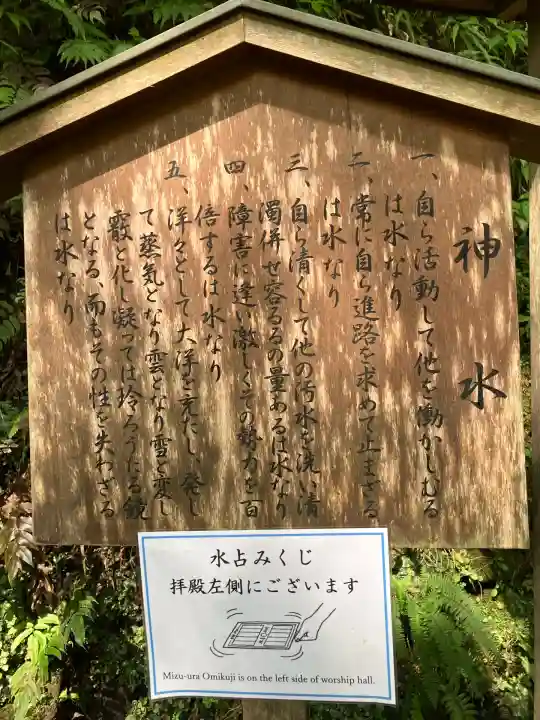 神水
一、自ら活動して他を働かしむる
は水なり
二、常に自ら進路を求めて止まざる
は水なり
三、自ら清くして他の汚水を洗い清
濁併せ容るるの量あるは水なり
四、障害に逢い激しくその勢力を百
倍するは水なり
五、洋々として大洋を充たし、発し
て蒸気となり雲となり雪と変し
霰と化し凝っては玲ろうたる鏡
となる、而もその性を失わざる
は水なり
水占みくじ
拝殿左側にございます
Mizu-ura Omikuji is on the left side of worship hall.